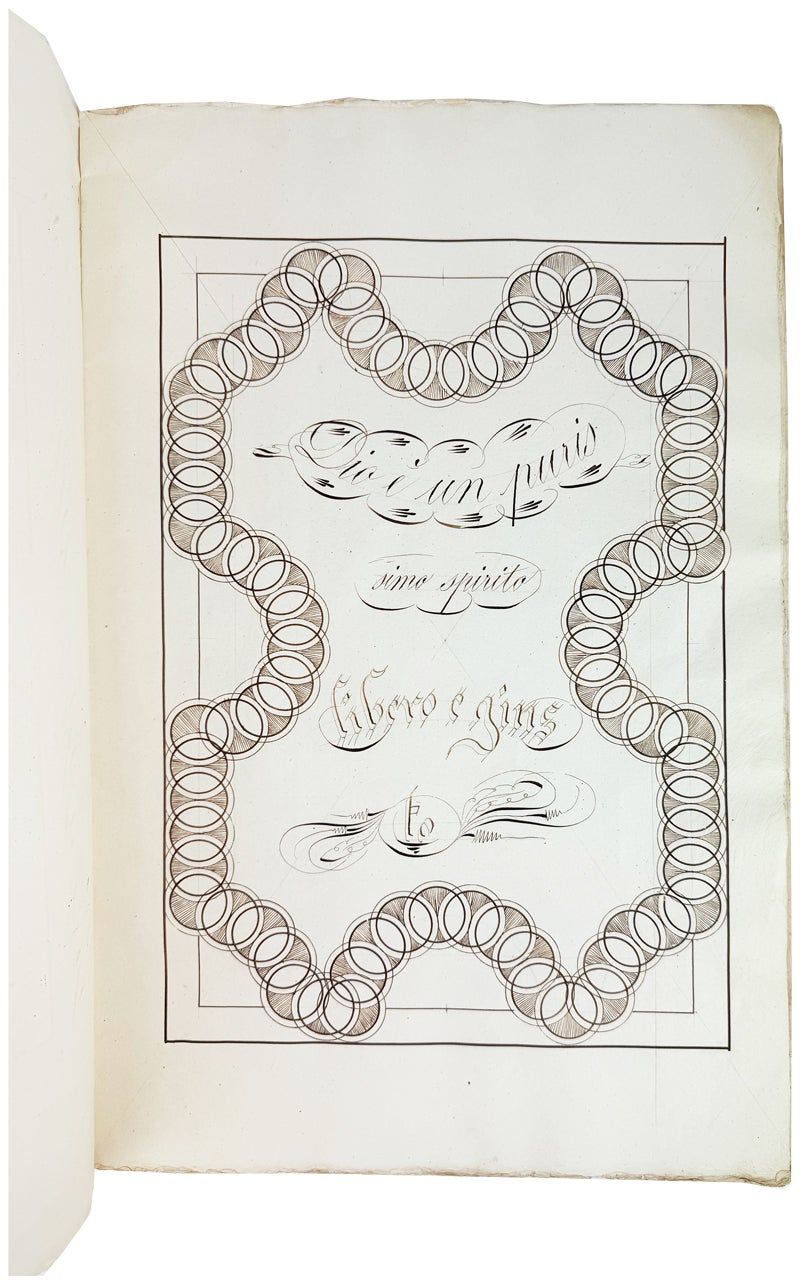 Dio è un puris
simo spirito
libero e gius
to